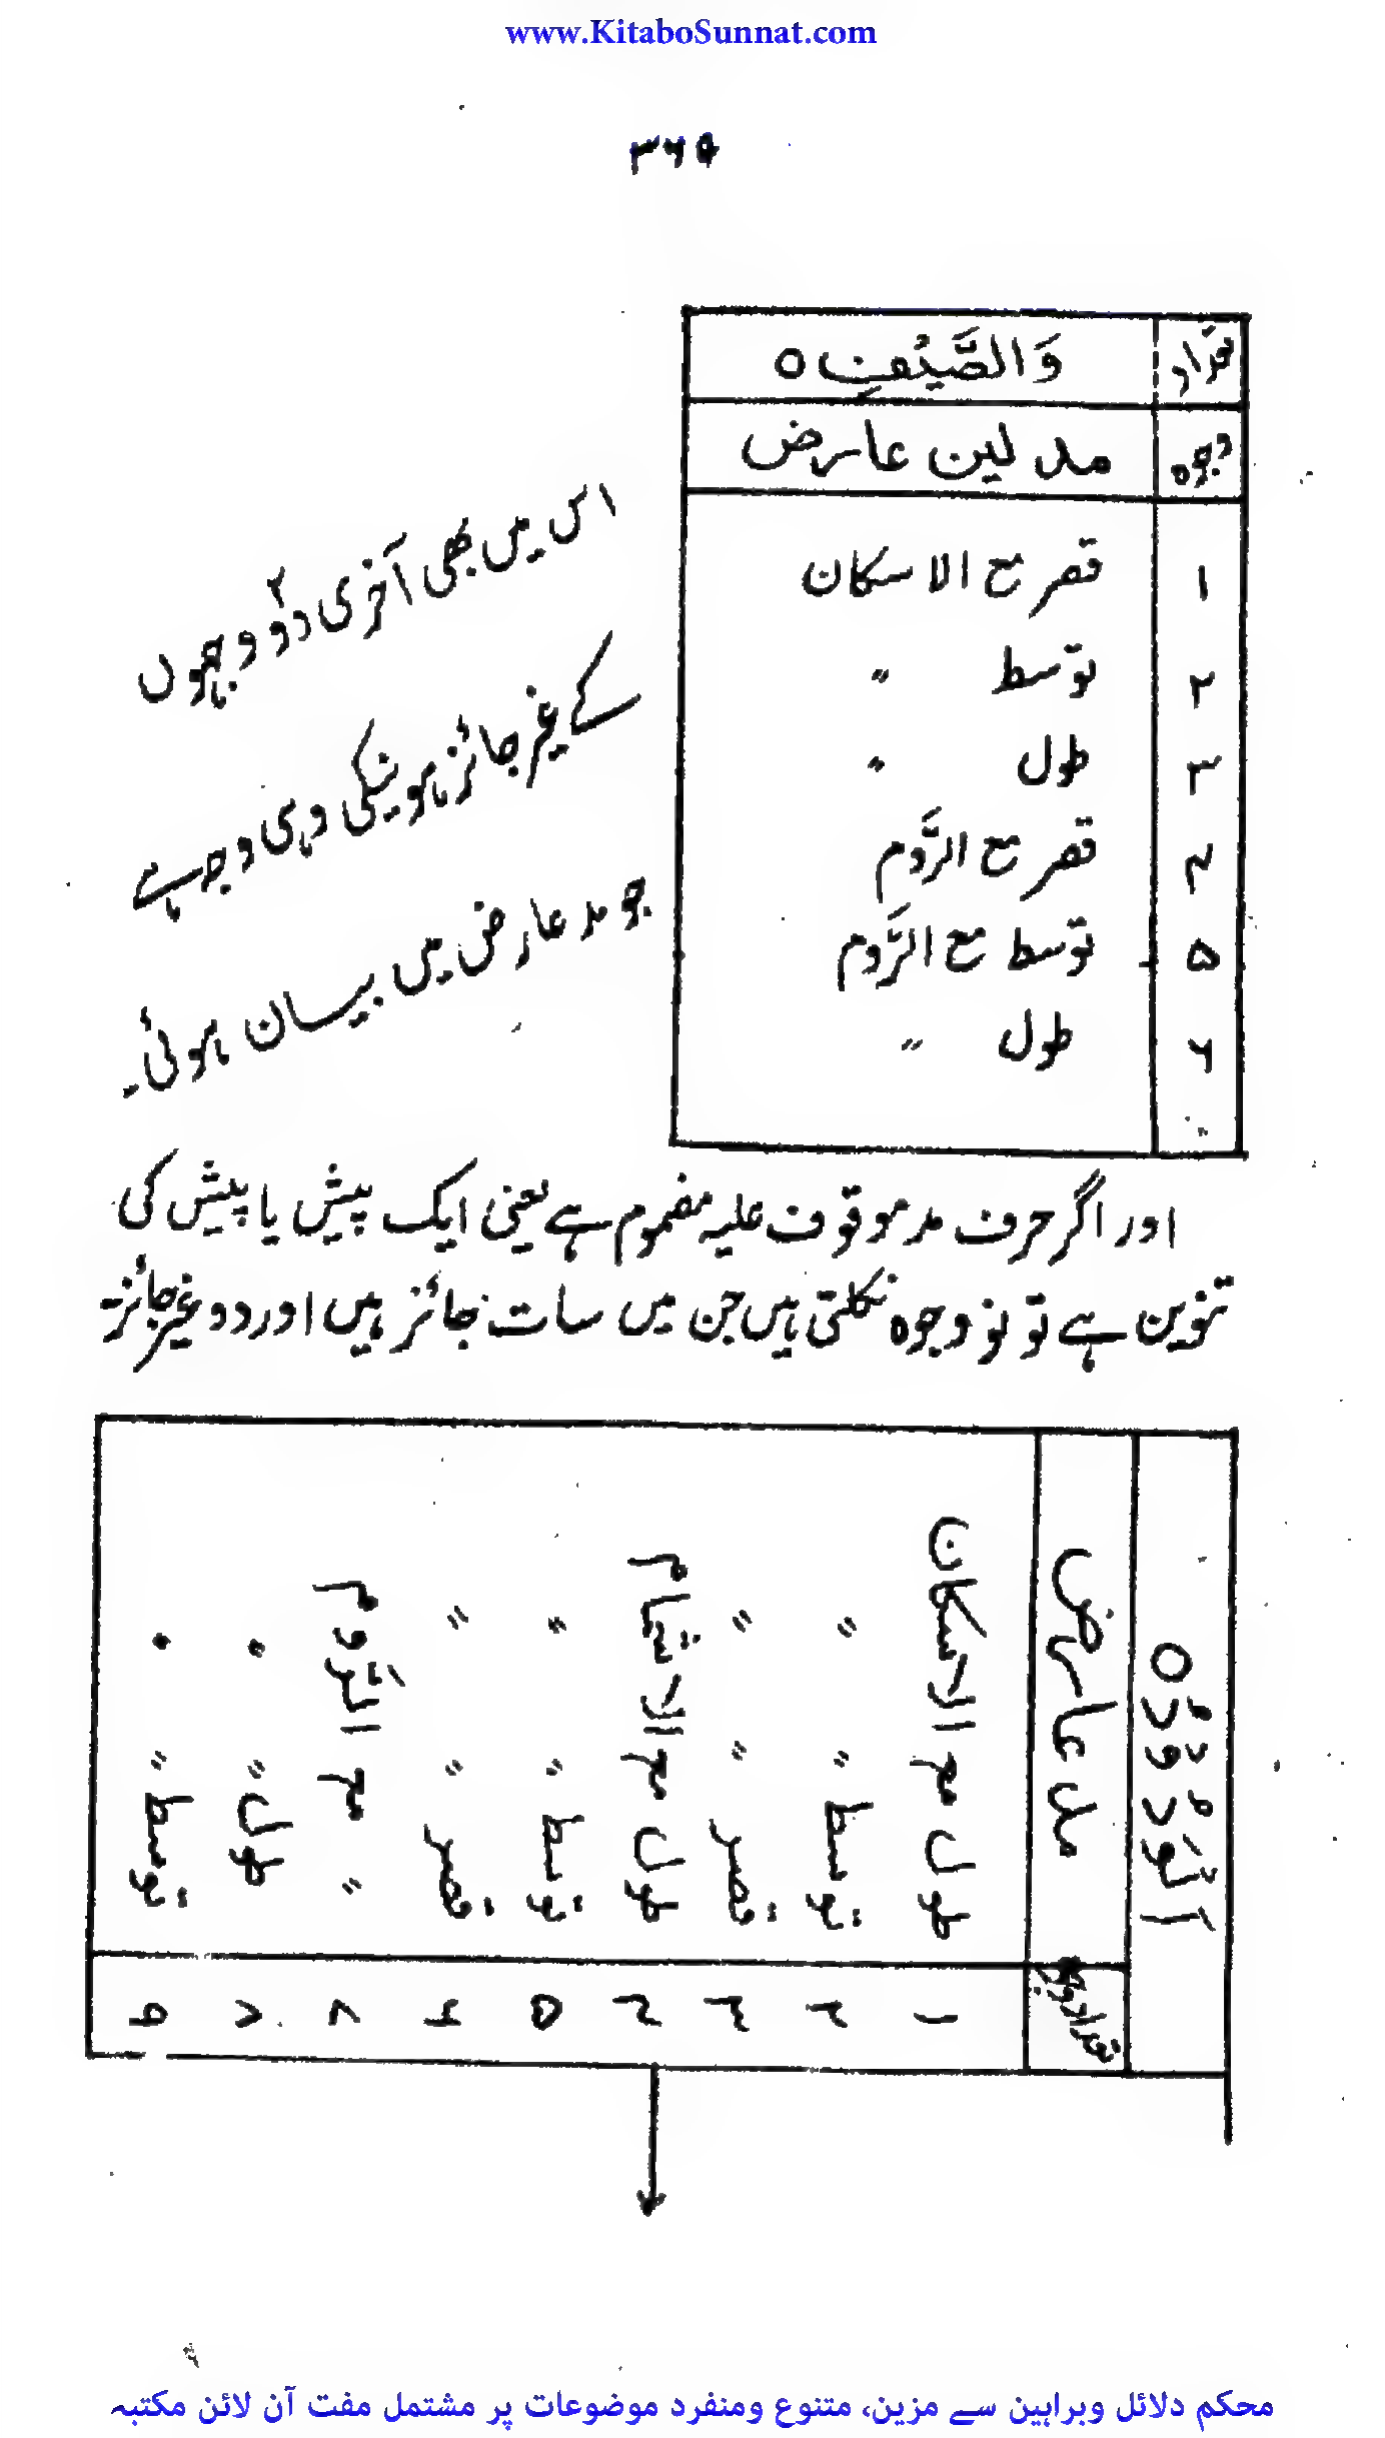 www.KitaboSunnat.com
۳۶۵
تعداد وَالصَّيْفِ ٥
وجوہ مد لین عارض
۱ قصر مع الاسکان
۲ توسط 〃
۳ طول 〃
۴ قصر مع الرَّوم
۵ توسط مع الرَّوم
۶ طول 〃
اس میں بھی آخری دو ۲ وجہوں
کے غیر جائز ہونیکی وہی وجہ ہے
جو مد عارض میں بیان ہوئی۔
اور اگر حرف مد موقوف علیہ مضموم ہے یعنی ایک پیش یا پیش کی
تنوین ہے تو نو وجوہ نکلتی ہیں جن میں سات جائز ہیں اور دو غیر جائز۔
مد عارض
تعداد وجوہ
۱ طول مع الاسکان
۲ توسط 〃 〃
۳ قصر 〃 〃
۴ طول مع الاشمام
۵ توسط 〃 〃
۶ قصر 〃 〃
۷ 〃 مع الرَّوم
۸ طول 〃 〃
۹ توسط 〃 〃
محکم دلائل وبراہین سے مزین، متنوع ومنفرد موضوعات پر مشتمل مفت آن لائن مکتبہ